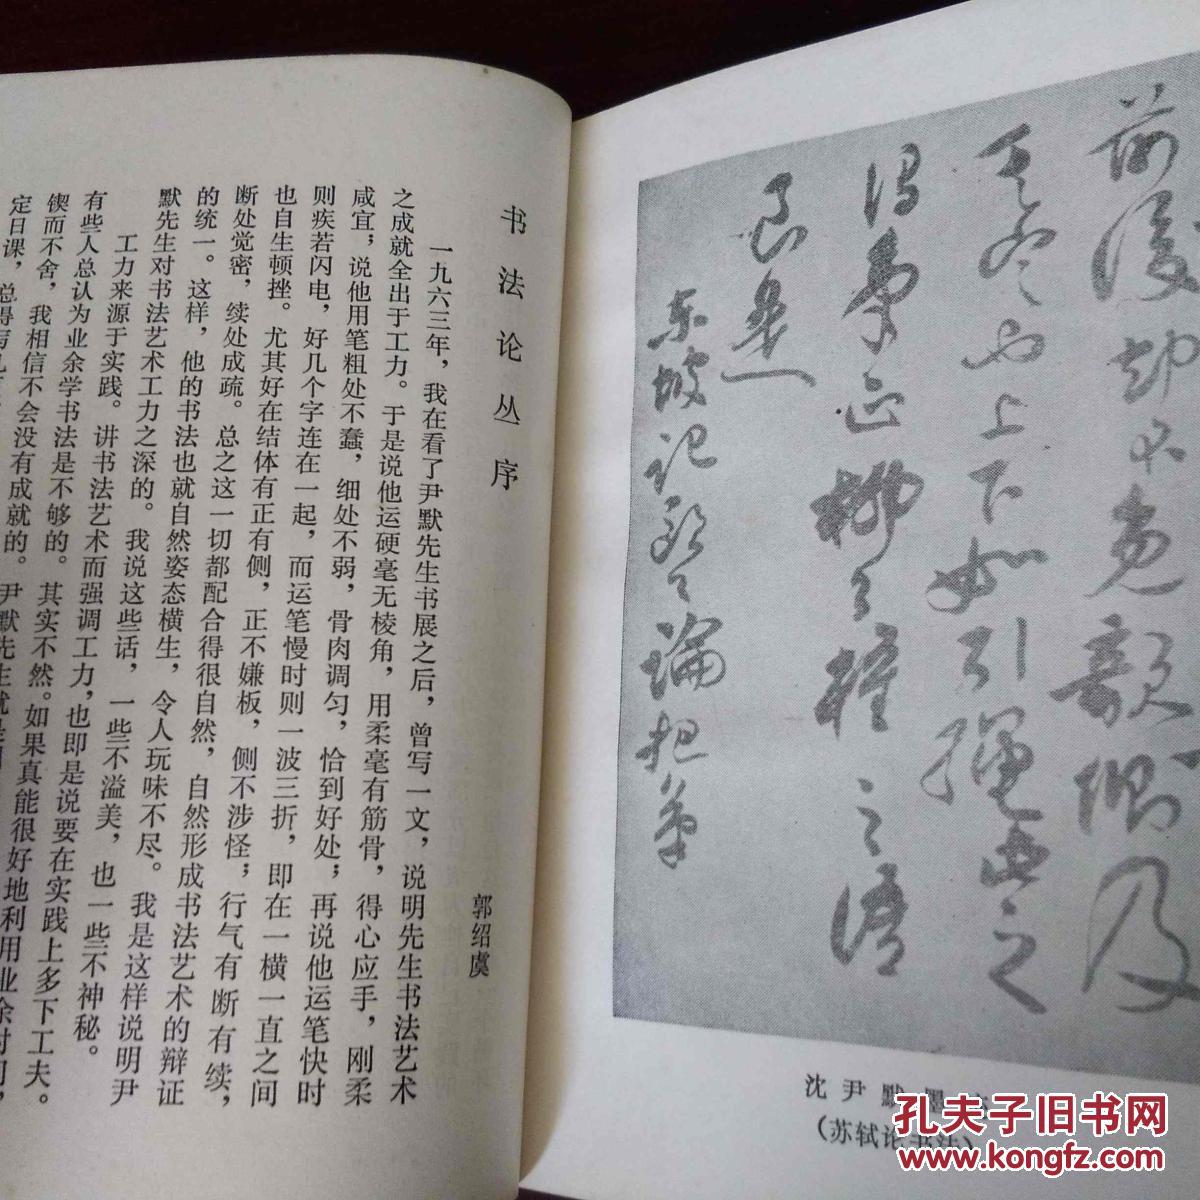 前後却不免欹側及
其定也上下如引繩此之
謂筆正柳公權之語
良是
東坡記歐公論把筆
沈尹默墨
（苏轼论书法）
书法论丛序
郭绍虞
一九六三年，我在看了尹默先生书展之后，曾写一文，说明先生书法艺术
之成就全出于工力。于是说他运硬毫无棱角，用柔毫有筋骨，得心应手，刚柔
咸宜，说他用笔粗处不蠢，细处不弱，骨肉调匀，恰到好处；再说他运笔快时
则疾若闪电，好几个字连在一起，而运笔慢时则一波三折，即在一横一直之间
也自生顿挫。尤其好在结体有正有侧，正不嫌板，侧不涉怪；行气有断有续，
断处觉密，续处成疏。总之这一切都配合得很自然，自然形成书法艺术的辩证
的统一。这样，他的书法也就自然姿态横生，令人玩味不尽。我是这样说明尹
默先生对书法艺术工力之深的。我说这些话，一些不溢美，也一些不神秘。
工力来源于实践。讲书法艺术而强调工力，也即是说要在实践上多下工夫。
有些人总认为业余学书法是不够的。其实不然。如果真能很好地利用业余时间，
锲而不舍，我相信不会没有成就的。尹默先生就是
定日课，总得写几
孔夫子旧书网
www.kongfz.com